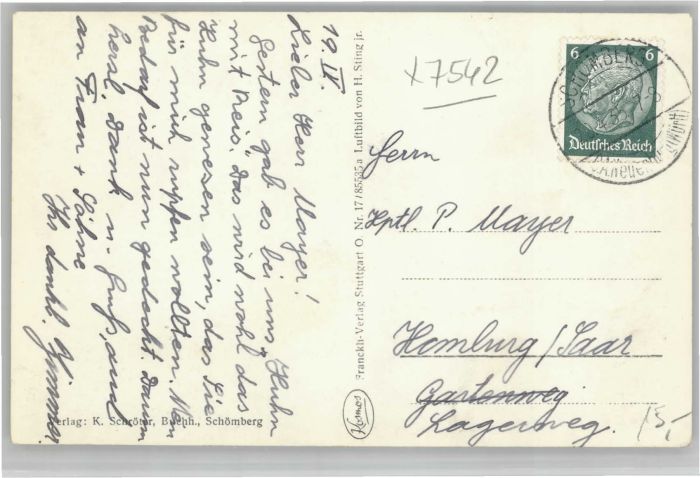 19. IV.
Lieber Herr Mayer!
Gestern gab es bei uns „Huhn
mit Reis“. Das wird wohl das
Huhn gewesen sein, das Sie
für mich rupfen wollten. Mein
Bedarf ist nun gedeckt. Darum
herzl. Dank u. Gruß, auch
an Frau + Söhne
Ihr dankb.
Verlag: K. Schröter, Buchh., Schömberg
Franckh-Verlag Stuttgart O. Nr. 17/85535a Luftbild von H. Sting jr.
Kosmos
x7542
6 6
Deutsches Reich
SCHÖMBERG
Herrn
Hptl. P. Mayer
Homburg/Saar
Gartenweg
Lagerweg.
15,-